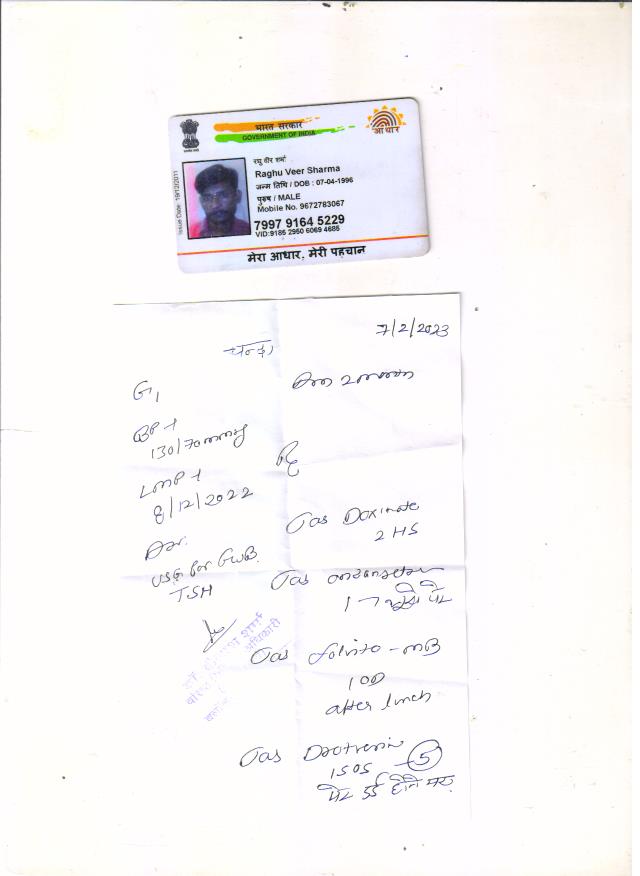 भारत सरकार
GOVERNMENT OF INDIA
आधार
Issue Date: 19/12/2011
रघु वीर शर्मा
Raghu Veer Sharma
जन्म तिथि / DOB : 07-04-1996
पुरुष / MALE
Mobile No. 9672783067
7997 9164 5229
VID:9185 2950 6069 4685
मेरा आधार, मेरी पहचान
7/2/2023
चन्दा
G1
BP
130/70mmHg
LMP
8/12/2022
8/12/2022
Rx
Doxinate
2 HS
USG for FWB
TSH
शर्मा
अधिकारी
- MB
1 OD
after lunch
1 SOS 5
पेट दर्द होने पर